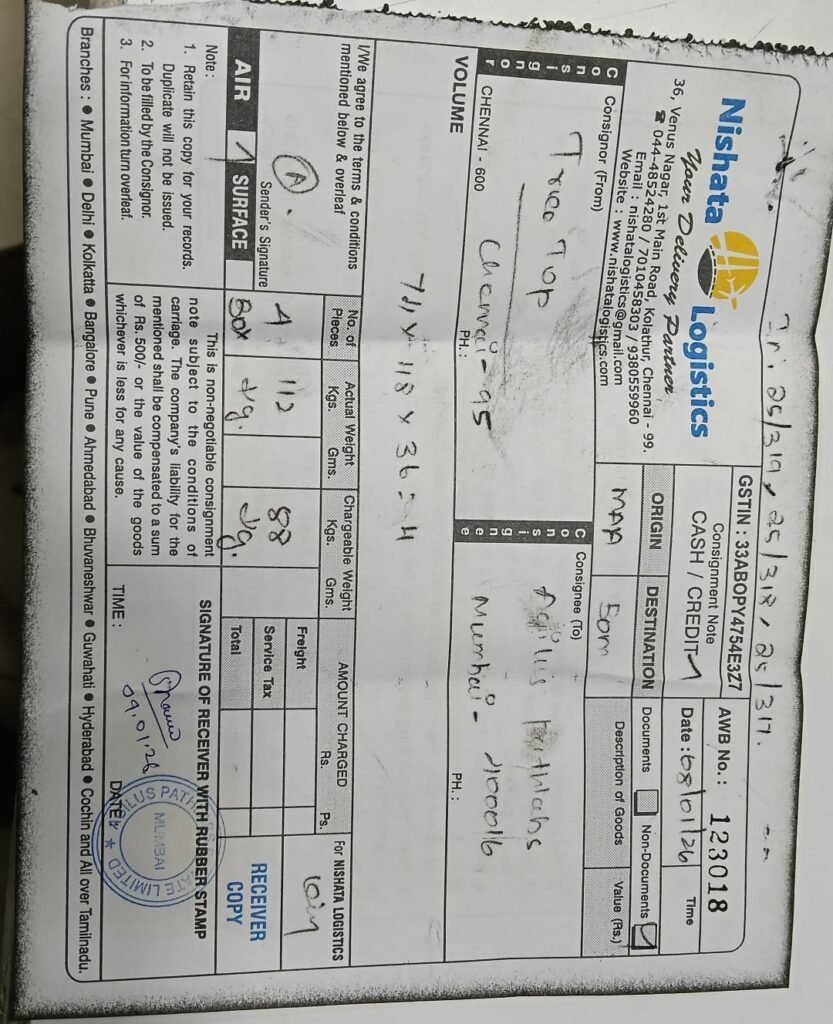 Inv: 25/319, 25/318, 25/317.
Nishata Logistics
Your Delivery Partner
36, Venus Nagar, 1st Main Road, Kolathur, Chennai - 99.
☎ 044-48524280 / 7010458303 / 9380559960
Email : nishatalogistics@gmail.com
Website : www.nishatalogistics.com
GSTIN : 33ABOPY4754E3Z7
Consignment Note
CASH / CREDIT ✓
AWB No.: 123018
Date : 08/01/26
Time
ORIGIN
DESTINATION
MAA
Bom
Documents
Non-Documents ✓
Description of Goods
Value (Rs.)
Consignor
Consignor (From)
Trico Top
CHENNAI - 600
Chennai - 95
PH.:
Consignee
Consignee (To)
Agilus Pathlabs
Mumbai - 400016
PH.:
VOLUME
I/We agree to the terms & conditions
mentioned below & overleaf
Sender's Signature
AIR
✓
SURFACE
No. of Pieces
4 Box
Actual Weight
Kgs. Gms.
112 kg.
Chargeable Weight
Kgs. Gms.
88 kg.
AMOUNT CHARGED
Rs. Ps.
Freight
Service Tax
Total
For NISHATA LOGISTICS
RECEIVER
COPY
Note :
1. Retain this copy for your records.
Duplicate will not be issued.
2. To be filled by the Consignor.
3. For information turn overleaf.
This is non-negotiable consignment
note subject to the conditions of
carriage. The company's liability for the
mentioned shall be compensated to a sum
of Rs. 500/- or the value of the goods
whichever is less for any cause.
SIGNATURE OF RECEIVER WITH RUBBER STAMP
09.01.26
TIME :
DATE :
MUMBAI
LIMITED
Branches : ● Mumbai ● Delhi ● Kolkatta ● Bangalore ● Pune ● Ahmedabad ● Bhuvaneshwar ● Guwahati ● Hyderabad ● Cochin and All over Tamilnadu.